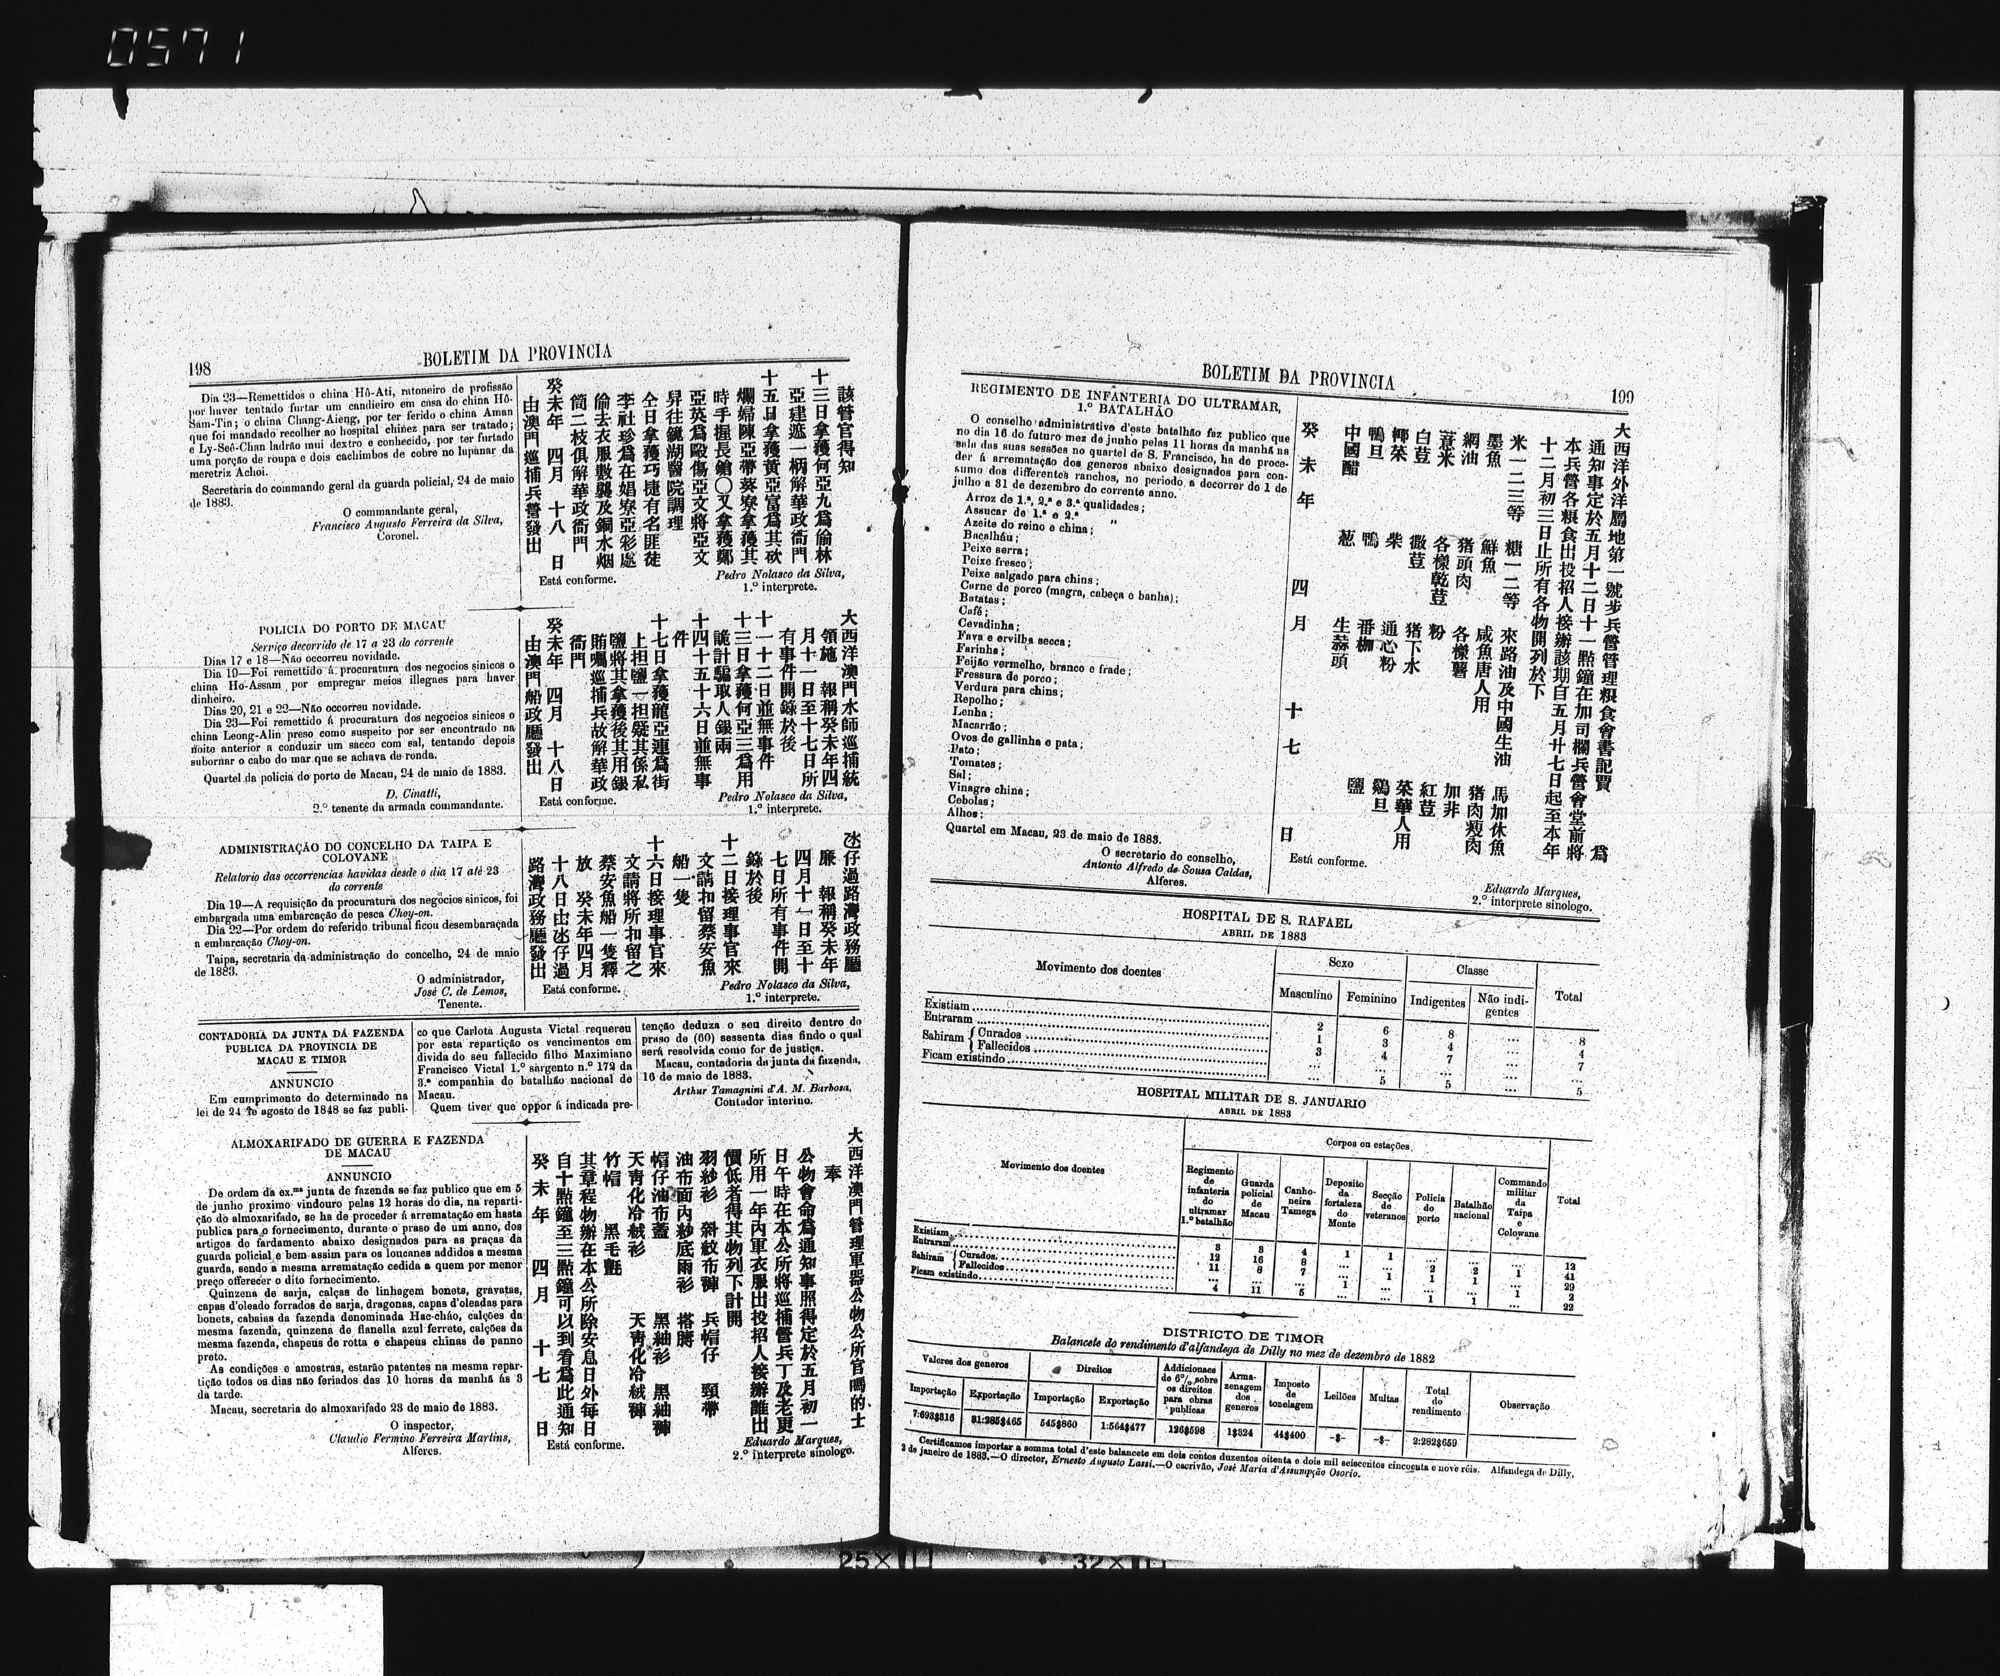 0571
198
BOLETIM DA PROVINCIA
Dia 23—Remettidos o china Hô-Ati, ratoneiro de profissão
por haver tentado furtar um candieiro em casa do china Hô-
Sam-Tin; o china Chang-Aieng, por ter ferido o china Aman
que foi mandado recolher ao hospital chinez para ser tratado;
e Ly-Seê-Chan ladrão mui dextro e conhecido, por ter furtado
uma porção de roupa e dois cachimbos de cobre no lupanar da
meretriz Achoi.
Secretaria do commando geral da guarda policial, 24 de maio
de 1883.
O commandante geral,
Francisco Augusto Ferreira da Silva,
Coronel.
該管官得知
十三日拿獲何亞九爲偷林
亞建遮一柄解華政衙門
十五日拿獲黃亞富爲其砍
爛婦陳亞帶葵寮拿獲其
時手握長鎗〇又拿獲鄭
亞英爲毆傷亞文將亞文
舁往鏡湖醫院調理
仝日拿獲巧捷有名匪徒
李社珍爲在娼寮亞彩處
偷去衣服數襲及銅水烟
筒二枝俱解華政衙門
癸未年 四月 十八 日
由澳門巡捕兵營發出
Está conforme.
Pedro Nolasco da Silva,
1.º interprete.
POLICIA DO PORTO DE MACAU
Serviço decorrido de 17 a 23 do corrente
Dias 17 e 18—Não occorreu novidade.
Dia 19—Foi remettido á procuratura dos negocios sinicos o
china Ho-Assam por empregar meios illegaes para haver
dinheiro.
Dias 20, 21 e 22—Não occorreu novidade.
Dia 23—Foi remettido á procuratura dos negocios sinicos o
china Leong-Alin preso como suspeito por ser encontrado na
noite anterior a conduzir um sacco com sal, tentando depois
subornar o cabo do mar que se achava de ronda.
Quartel da policia do porto de Macau, 24 de maio de 1883.
D. Cinatti,
2.º tenente da armada commandante.
大西洋澳門水師巡捕統
領施 報稱癸未年四
月十一日至十七日所
有事件開錄於後
十一十二日並無事件
十三日拿獲何亞三爲用
詭計騙取人銀兩
十四十五十六日並無事
件
十七日拿獲龍亞連爲街
上担鹽一担疑其係私
鹽將其拿獲後其用銀
賄囑巡捕兵故解華政
衙門
癸未年 四月 十八日
由澳門船政廳發出
Está conforme.
Pedro Nolasco da Silva,
1.º interprete.
ADMINISTRAÇÃO DO CONCELHO DA TAIPA E
COLOVANE
Relatorio das occorrencias havidas desde o dia 17 até 23
do corrente
Dia 19—A requisição da procuratura dos negocios sinicos, foi
embargada uma embarcação de pesca Choy-on.
Dia 22—Por ordem do referido tribunal ficou desembaraçada
a embarcação Choy-on.
Taipa, secretaria da administração do concelho, 24 de maio
de 1883.
O administrador,
José C. de Lemos,
Tenente.
氹仔過路灣政務廳
廉 報稱癸未年
四月十一日至十
七日所有事件開
錄於後
十二日接理事官來
文請扣留蔡安魚
船一隻
十六日接理事官來
文請將所扣留之
蔡安魚船一隻釋
放 癸未年四月
十八日由氹仔過
路灣政務廳發出
Está conforme.
Pedro Nolasco da Silva,
1.º interprete.
CONTADORIA DA JUNTA DA FAZENDA
PUBLICA DA PROVINCIA DE
MACAU E TIMOR
ANNUNCIO
Em cumprimento do determinado na
lei de 24 de agosto de 1848 se faz publi-
co que Carlota Augusta Victal requereu
por esta repartição os vencimentos em
divida do seu fallecido filho Maximiano
Francisco Victal 1.º sargento n.º 172 da
3.ª companhia do batalhão nacional de
Macau.
Quem tiver que oppor á indicada pre-
tenção deduza o seu direito dentro do
praso de (60) sessenta dias findo o qual
será resolvida como for de justiça.
Macau, contadoria da junta da fazenda,
16 de maio de 1883.
Arthur Tamagnini d'A. M. Barbosa,
Contador interino.
ALMOXARIFADO DE GUERRA E FAZENDA
DE MACAU
ANNUNCIO
De ordem da ex.ma junta de fazenda se faz publico que em 5
de junho proximo vindouro pelas 12 horas do dia, na reparti-
ção do almoxarifado, se ha de proceder á arrematação em hasta
publica para o fornecimento, durante o praso de um anno, dos
artigos de fardamento abaixo designados para as praças da
guarda policial e bem assim para os loucanes addidos a mesma
guarda, sendo a mesma arrematação cedida a quem por menor
preço offerecer o dito fornecimento.
Quinzena de sarja, calças de linhagem bonets, gravatas,
capas d'oleado forrados de sarja, dragonas, capas d'oleadas para
bonets, cabaias da fazenda denominada Hac-cháo, calções da
mesma fazenda, quinzena de flanella azul ferrete, calções da
mesma fazenda, chapeus de rotta e chapeus chinas de panno
preto.
As condições e amostras, estarão patentes na mesma repar-
tição todos os dias não feriados das 10 horas da manhã ás 3
da tarde.
Macau, secretaria do almoxarifado 23 de maio de 1883.
O inspector,
Claudio Fermino Ferreira Martins,
Alferes.
大西洋澳門管理軍器公物公所官嗎的士
奉
公物會命爲通知事照得定於五月初一
日午時在本公所將巡捕營兵丁及老更
所用一年內軍衣服出投招人接辦誰出
價低者得其物列下計開
羽紗衫 斜紋布褲 兵帽仔 頸帶
油布面內紗底雨衫 搭膊
帽仔油布蓋 黑紬衫 黑紬褲
天靑化冷絨衫 天靑化冷絨褲
竹帽 黑毛氈
其章程物辦在本公所除安息日外每日
自十點鐘至三點鐘可以到看爲此通知
癸未年 四月 十七 日
Está conforme.
Eduardo Marques,
2.º interprete sinologo.
BOLETIM DA PROVINCIA
199
REGIMENTO DE INFANTERIA DO ULTRAMAR,
1.º BATALHÃO
O conselho administrativo d'este batalhão faz publico que
no dia 16 do futuro mez de junho pelas 11 horas da manhã na
sala das suas sessões no quartel de S. Francisco, ha de proce-
der á arrematação dos generos abaixo designados para con-
sumo dos differentes ranchos, no periodo a decorrer de 1 de
julho a 31 de dezembro do corrente anno.
Arroz de 1.ª, 2.ª e 3.ª qualidades;
Assucar de 1.ª e 2.ª „
Azeite do reino e china;
Bacalháu;
Peixe serra;
Peixe fresco;
Peixe salgado para chins;
Carne de porco (magra, cabeça e banha);
Batatas;
Café;
Cevadinha;
Fava e ervilha secca;
Farinha;
Feijão vermelho, branco e frade;
Fressura de porco;
Verdura para chins;
Repolho;
Lenha;
Macarrão;
Ovos de gallinha e pata;
Pato;
Tomates;
Sal;
Vinagre china;
Cebolas;
Alhos;
Quartel em Macau, 23 de maio de 1883.
O secretario do conselho,
Antonio Alfredo de Sousa Caldas,
Alferes.
大西洋外洋屬地第一號步兵營管理粮食會書記賈 爲
通知事定於五月十二日十一點鐘在加司欄兵營會堂前將
本兵營各粮食出投招人接辦該期自五月廿七日起至本年
十二月初三日止所有各物開列於下
米一二三等 糖一二等 來路油及中國生油 馬加休魚
墨魚 鮮魚 咸魚唐人用 猪肉瘦肉
網油 猪頭肉 各樣薯 加非
薏米 各樣乾荳 粉 紅荳
白荳 微荳 猪下水 菜華人用
椰菜 柴 通心粉 鷄旦
鴨旦 鴨 番枷 鹽
中國醋 葱 生蒜頭
癸未年 四月 十七 日
Está conforme.
Eduardo Marques,
2.º interprete sinologo.
HOSPITAL DE S. RAFAEL
ABRIL DE 1883
Movimento dos doentes
Sexo
Classe
Total
Masculino Feminino Indigentes Não indi-
gentes
Existiam 2 6 8 ... 8
Entraram 1 3 4 ... 4
Sahiram { Curados 3 4 7 ... 7
Fallecidos ... ... ... ... ...
Ficam existindo ... 5 5 ... 5
HOSPITAL MILITAR DE S. JANUARIO
ABRIL DE 1883
Movimento dos doentes
Corpos ou estações
Regimento de infanteria do ultramar 1.º batalhão
Guarda policial de Macau
Canhoneira Tamega
Deposito da fortaleza do Monte
Secção de veteranos
Policia do porto
Batalhão nacional
Commando militar da Taipa e Colowane
Total
Existiam 3 3 4 1 1 ... ... ... 12
Entraram 12 16 8 ... ... 2 2 1 41
Sahiram { Curados 11 8 7 ... 1 1 1 ... 29
Fallecidos ... ... ... 1 ... ... ... 1 2
Ficam existindo 4 11 5 ... ... 1 1 ... 22
DISTRICTO DE TIMOR
Balancete do rendimento d'alfandega de Dilly no mez de dezembro de 1882
Valores dos generos
Direitos
Addicionaes de 6% sobre os direitos para obras publicas
Armazenagem dos generos
Imposto de tonelagem
Leilões
Multas
Total do rendimento
Observação
Importação Exportação Importação Exportação
7:693$316 31:285$465 545$860 1:564$477 126$598 1$324 44$400 -$- -$- 2:282$659
Certificamos importar a somma total d'este balancete em dois contos duzentos oitenta e dois mil seiscentos cincoenta e nove réis. Alfandega de Dilly,
2 de janeiro de 1883.—O director, Ernesto Augusto Lassi.—O escrivão, José Maria d'Assumpção Osorio.
25×
32×